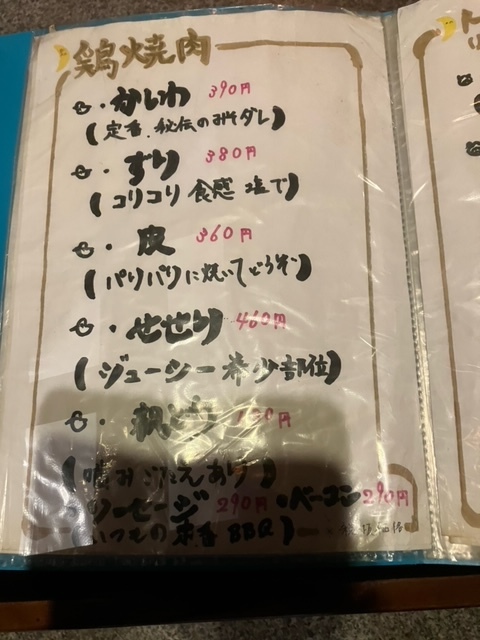 鶏焼肉
・かいわ 390円
(定番.秘伝のみそダレ)
・ずり 380円
(コリコリ食感 塩で)
・皮 360円
(パリパリに焼いてどうぞ)
・せせり 460円
(ジューシー 希少部位)
・親どり 円
(噛みごたえあり)
ソーセージ 290円 ・ベーコン 290円
いつもの 定番 BBQ)